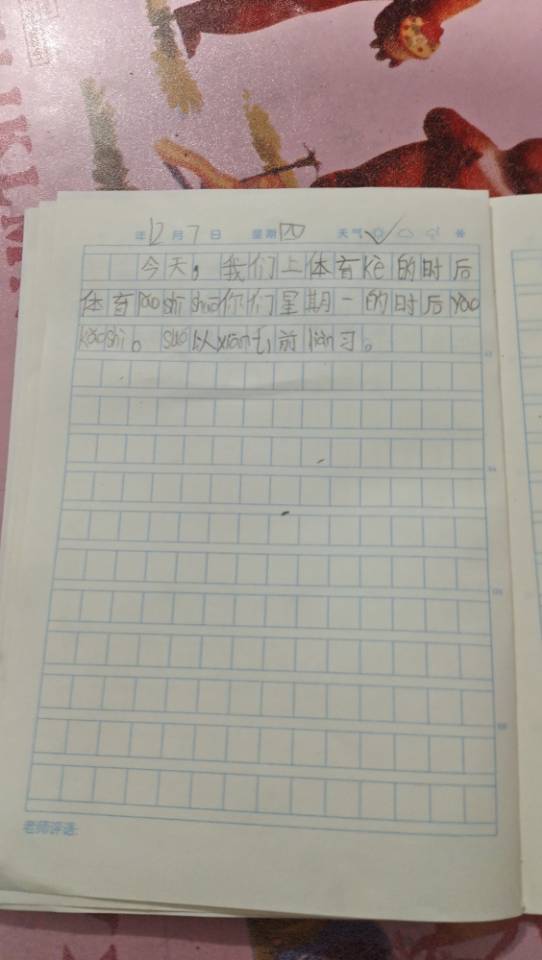 年12月7日 星期四 天气
今天，我们上体育kè的时后
体育lǎo shī shuō你们星期一的时后yào
kǎo shì。suó以xiàn七前liàn习。
老师评语: